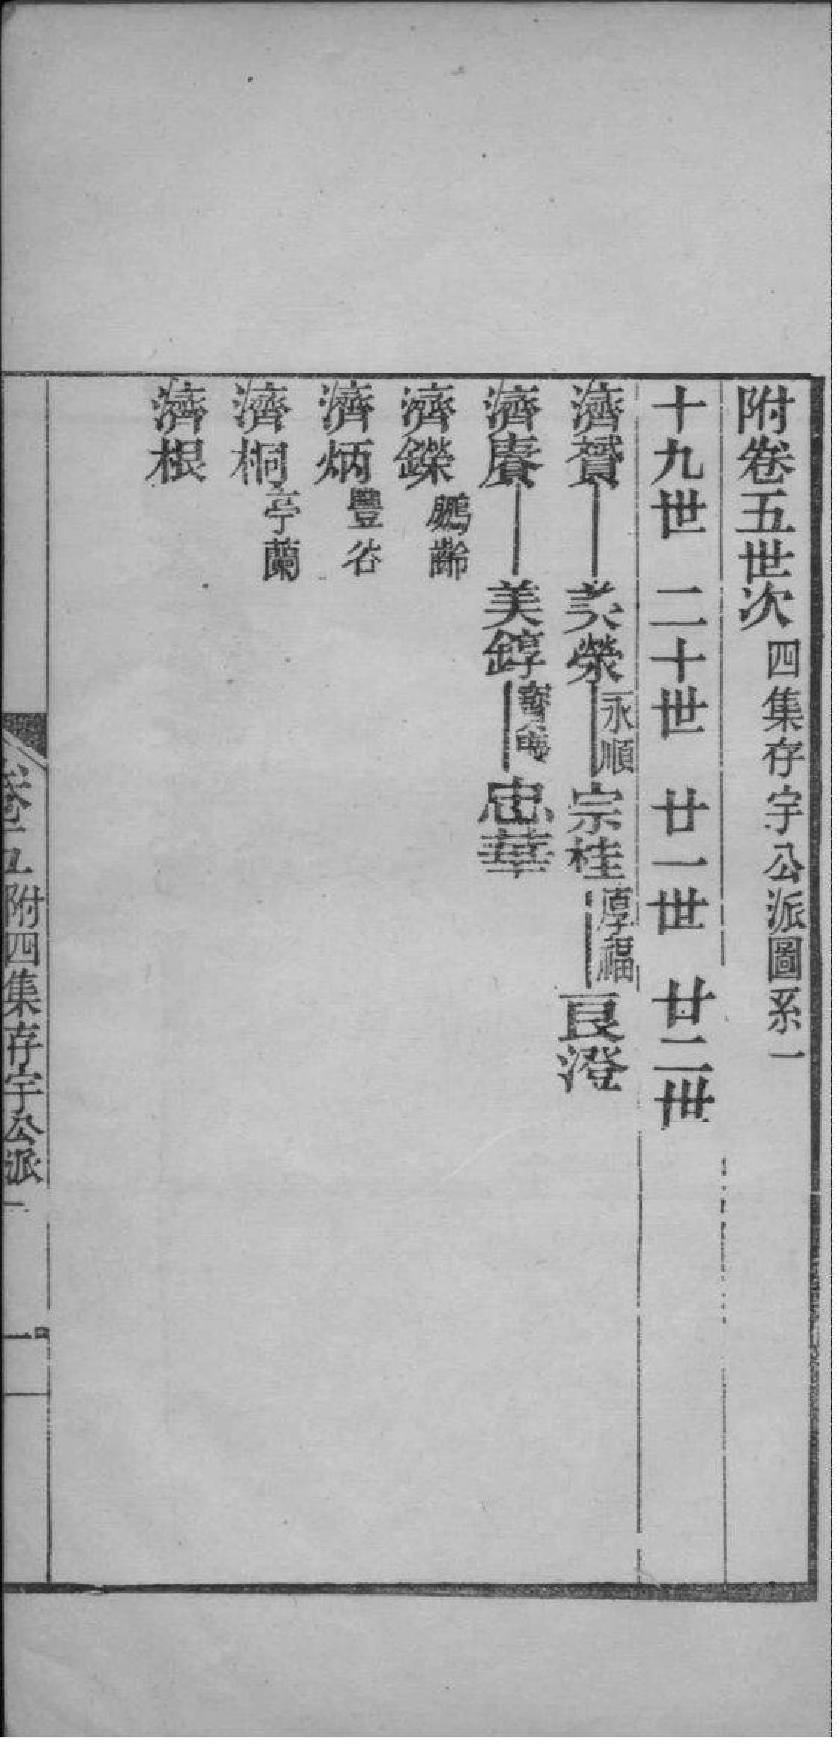 附卷五世次 四集存宇公派圖系一
十九世 二十世 廿一世 廿二世
濟贇 美榮 永順 宗桂 厚福 良澄
濟賡 美錞 忠華
濟鑅 鵬齡
濟炳 豐谷
濟桐 亭蘭
濟根
卷五附四集存宇公派 一